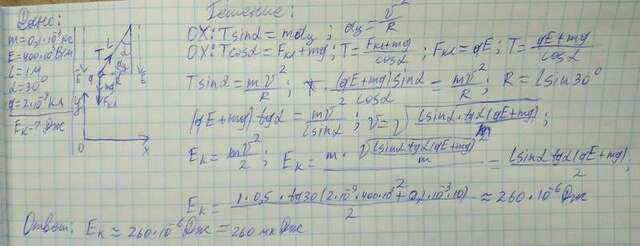 Дано:
m=0,1·10⁻³кг
E=400·10²В/м
l=1м
α=30°
q=2·10⁻⁹кл
Eк-? Дж
Решение:
OX: Tsinα=maц; aц=v²/R
OX: Tcosα=Fкл+mg; T=(Fкл+mg)/cosα; Fкл=qE; T=(qE+mg)/cosα
Tsinα=mv²/R; (qE+mg)sinα/cosα=mv²/R; R=lsin30°
(qE+mg)tgα=mv²/lsinα; v=√(lsinα·tgα(qE+mg)/m);
Eк=mv²/2; Eк=m·√(lsinαtgα(qE+mg)/m)²/2=lsinαtgα(qE+mg)/2;
Eк=1·0,5·tg30(2·10⁻⁹·400·10²+0,1·10⁻³·10)/2≈260·10⁻⁶Дж
Ответ: Eк≈260·10⁻⁶Дж=260мкДж